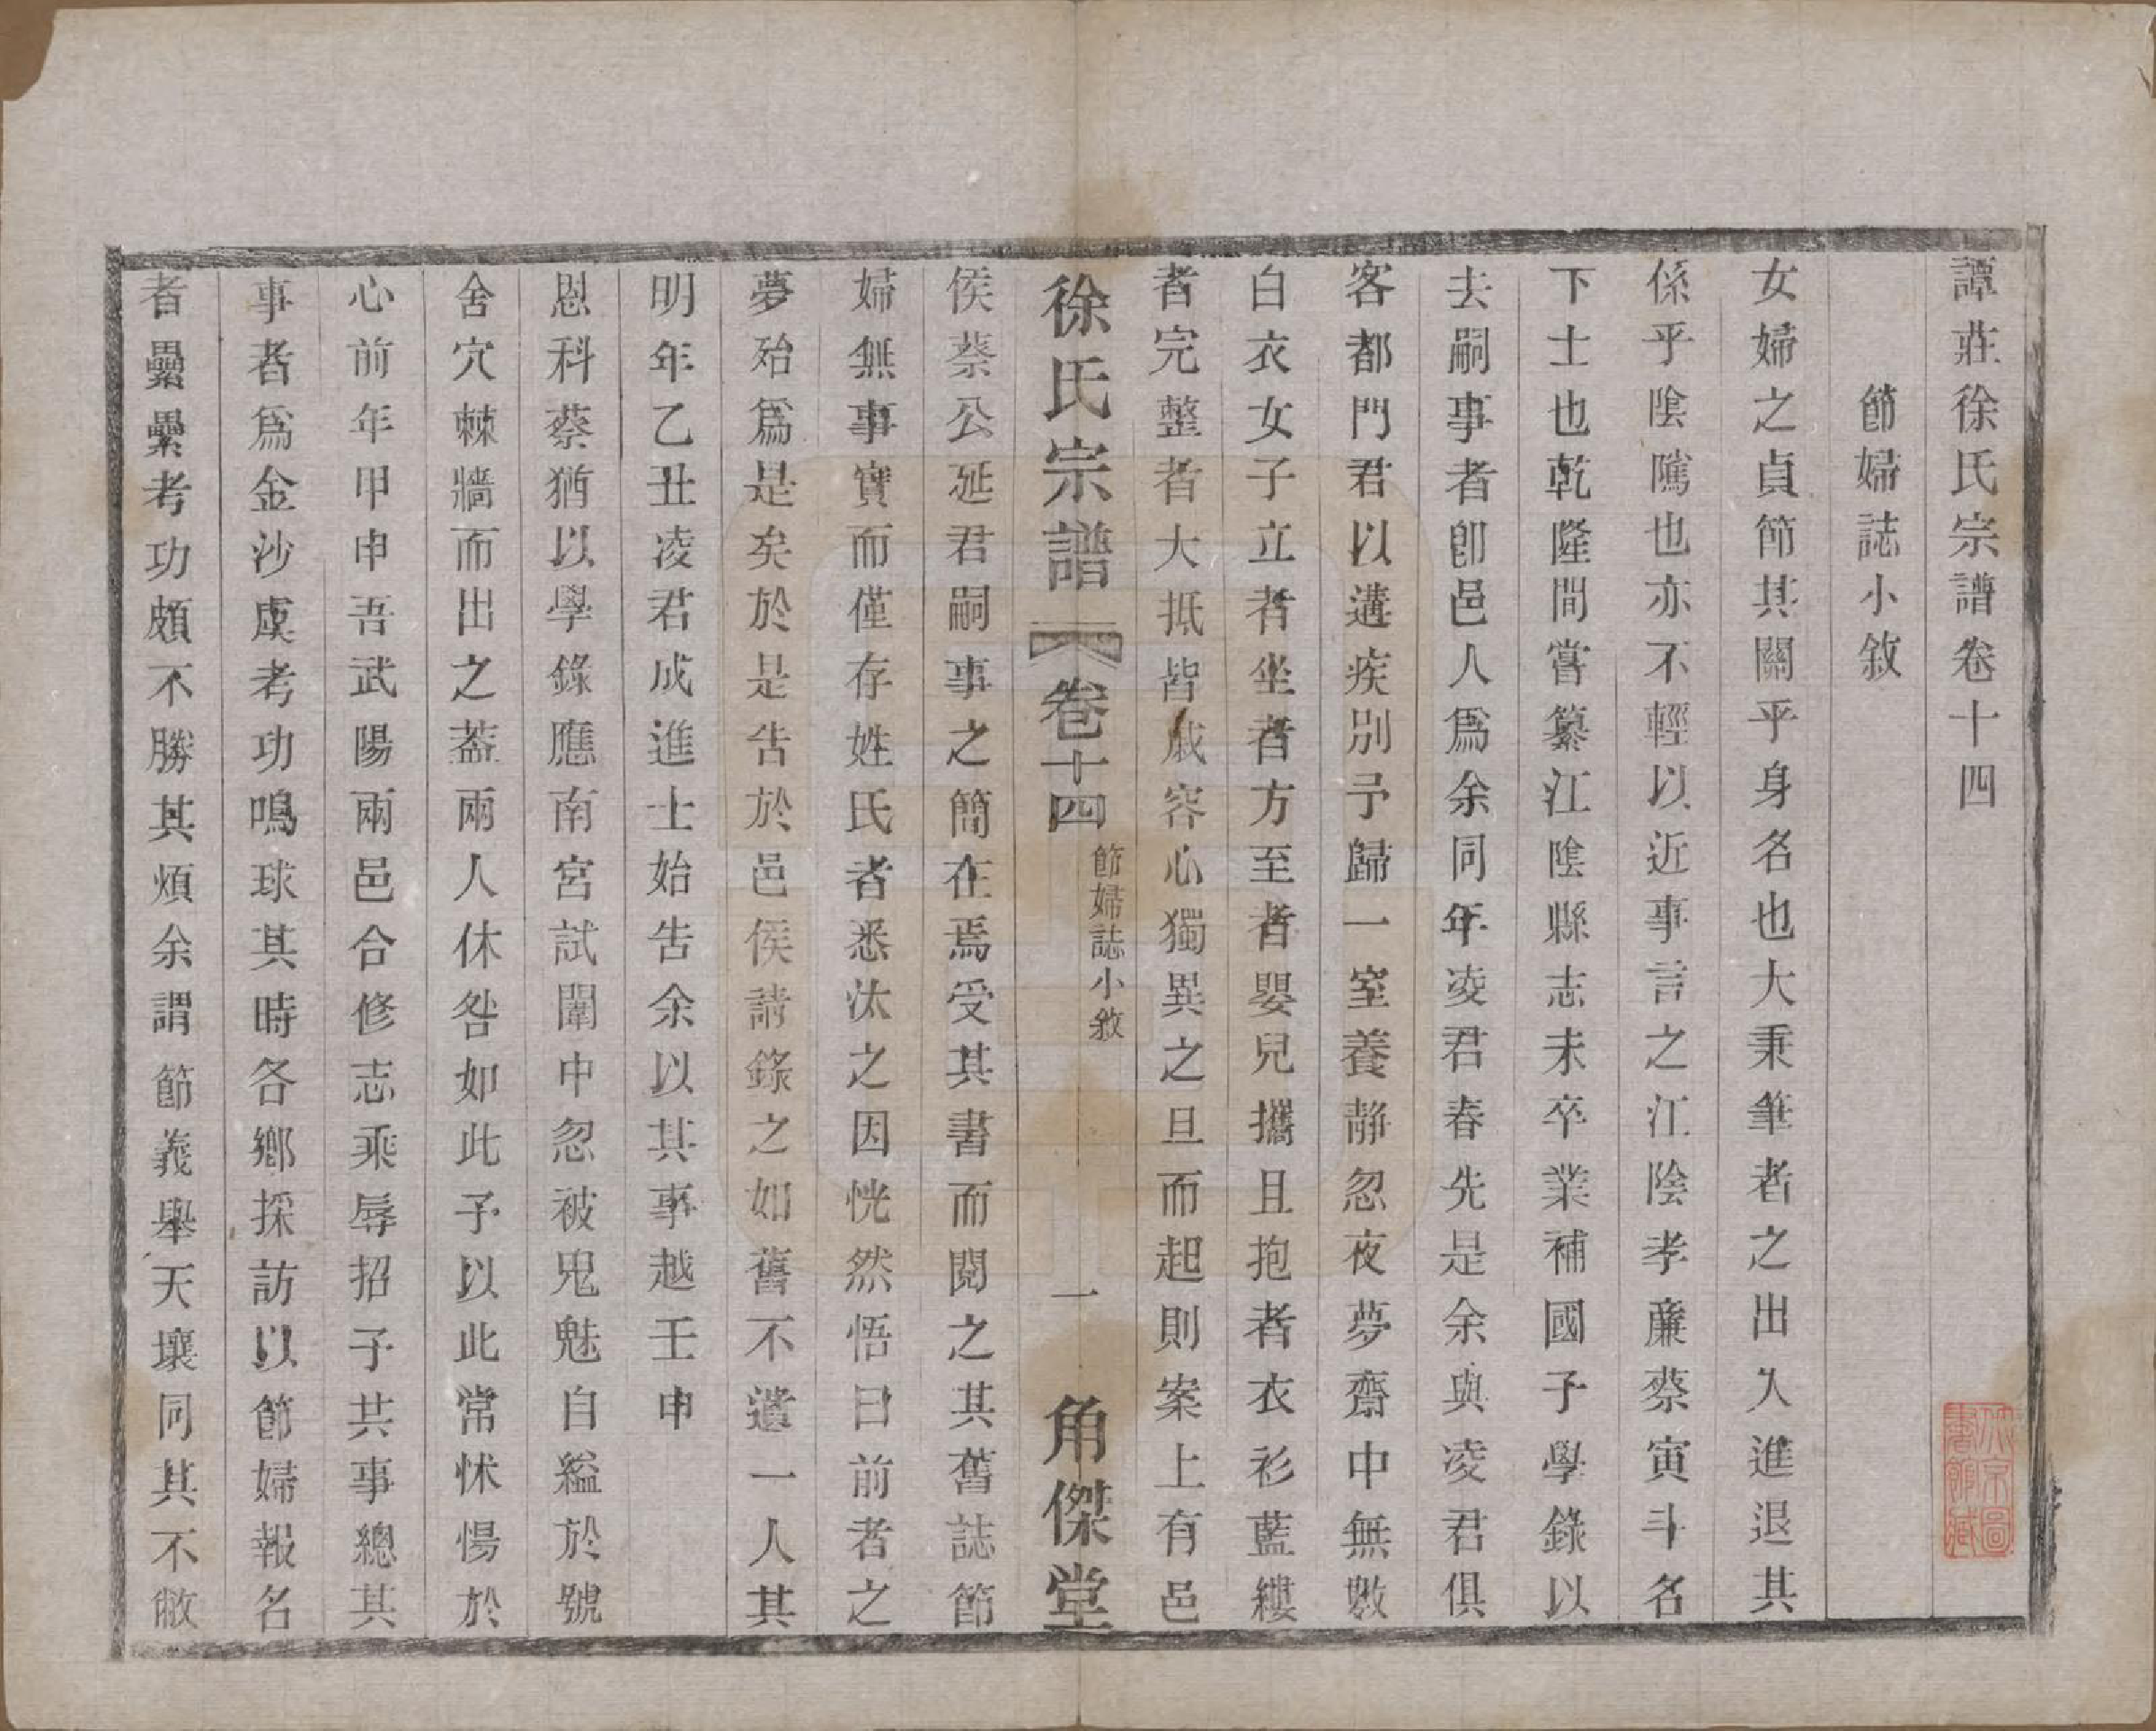 譚莊徐氏宗譜卷十四
節婦誌小敘
女婦之貞節其關乎身名也大秉筆者之出入進退其
係乎陰隲也亦不輕以近事言之江陰孝廉蔡寅斗名
下士也乾隆間嘗纂江陰縣志未卒業補國子學錄以
去嗣事者卽邑人爲余同年凌君春先是余與凌君俱
客都門君以遘疾別予歸一室養靜忽夜夢齋中無數
白衣女子立者坐者方至者嬰兒攜且抱者衣衫藍縷
者完整者大抵皆戚容心獨異之旦而起則案上有邑
徐氏宗譜 卷十四 節婦誌小敘 一 角傑堂
侯蔡公延君嗣事之簡在焉受其書而閱之其舊誌節
婦無事實而僅存姓氏者悉汰之因恍然悟曰前者之
夢殆爲是矣於是告於邑侯請錄之如舊不遺一人其
明年乙丑凌君成進士始告余以其事越壬申
恩科蔡猶以學錄應南宮試闈中忽被鬼魅自縊於號
舍穴棘牆而出之葢兩人休咎如此予以此常怵惕於
心前年甲申吾武陽兩邑合修志乘辱招子共事總其
事者爲金沙虞考功鳴球其時各鄉採訪以節婦報名
者纍纍考功頗不勝其煩余謂節義舉天壤同其不敝
北京圖書館藏